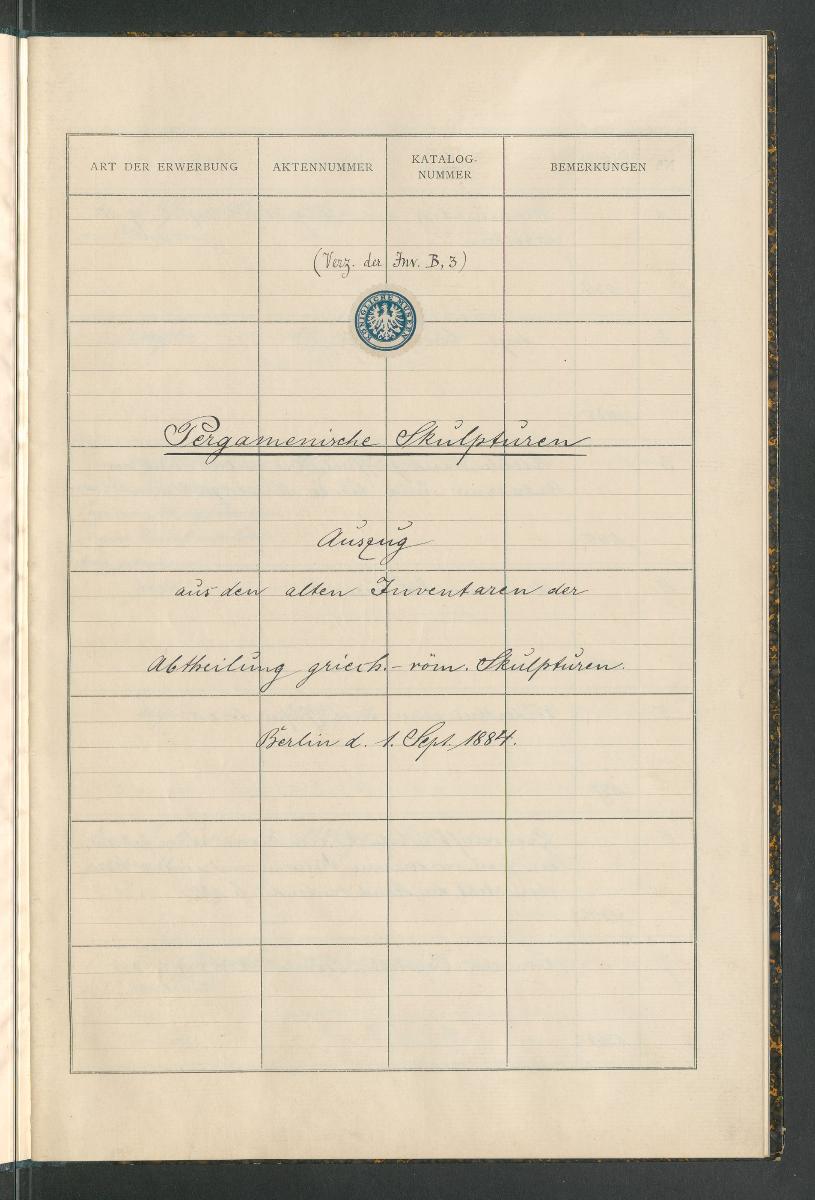 ART DER ERWERBUNG AKTENNUMMER KATALOG-NUMMER BEMERKUNGEN
(Verz. der Inv. B, 3)
KÖNIGLICHE MUSEEN
Pergamenische Skulpturen
Auszug
aus den alten Inventaren der
Abtheilung griech.-röm. Skulpturen.
Berlin d. 1. Sept. 1884.